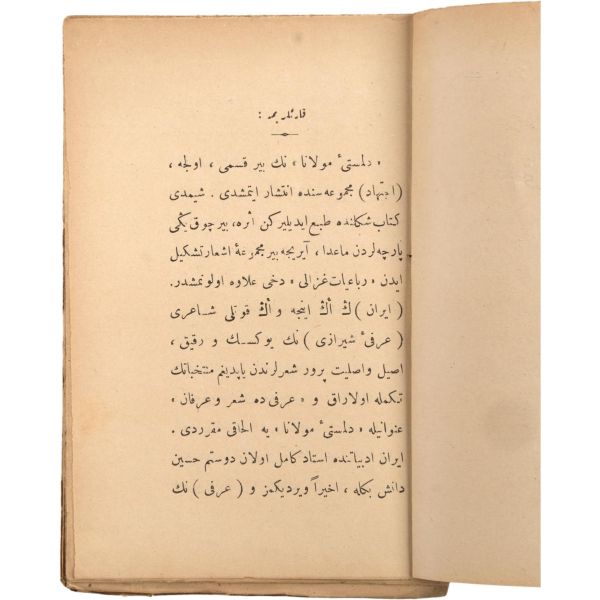 قارئلریمه :
« دلمستیٔ مولانا » نك بیر قسمی ، اولجه ،
(اجتهاد) مجموعه‌سنده انتشار ایتمشدی . شیمدی
كتاب شكلنده طبع ایدیلیركن اثره، بیر چوق یكی
پارچه‌لردن ماعدا ، آیریجه بیر مجموعهٔ اشعار تشكیل
ایدن « رباعیات غزالی » دخی علاوه اولونمشدر.
( ایران ) ڭ اڭ اینجه و اڭ قوتلی شاعری
( عرفیٔ شیرازی ) نك یوكسك و رقیق ،
اصیل واصلیت پرور شعرلرندن یاپدیغم منتخباتك
تكمله اولاراق و « عرفی ده شعر و عرفان »
عنوانیله « دلمستیٔ مولانا » یه الحاقی مقرردی .
ایران ادبیاتنده استاد كامل اولان دوستم حسین
دانش بكله ، اخیراً ویردیكمز و ( عرفی ) نك